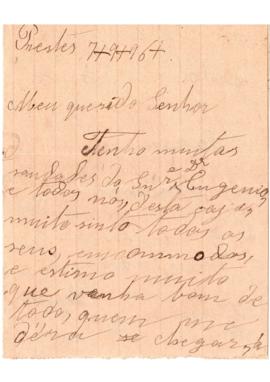 Prestes 7-9-964.
Meu querido Senhor
Tenho muitas
saudades do Snr e Dr Eugenio,
e todos nós, desta caza,
muito sinto todos os
seus emcommodos,
e estimo muito
que venha bom de
todo, quem me
déra chegar